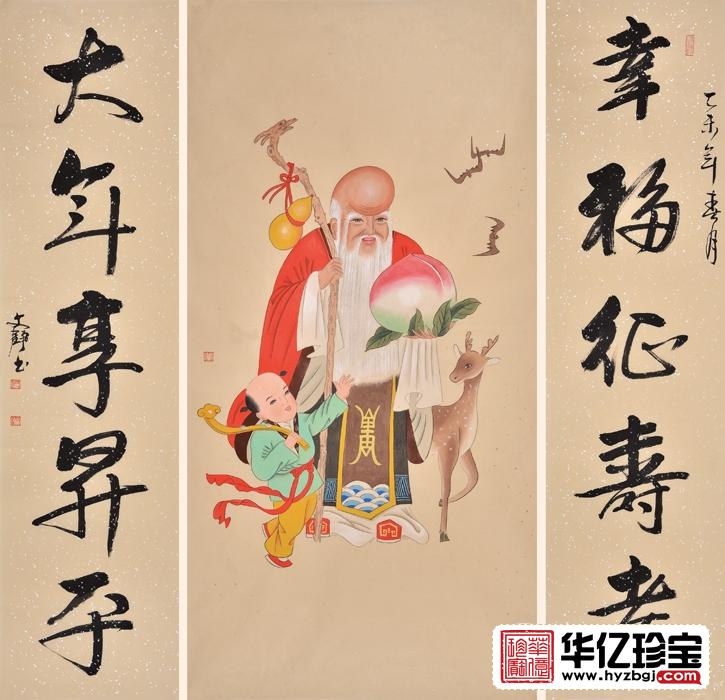 幸福征壽考
乙未年春月
大年享昇平
文靜书
华亿珍宝
www.hyzbgj.com